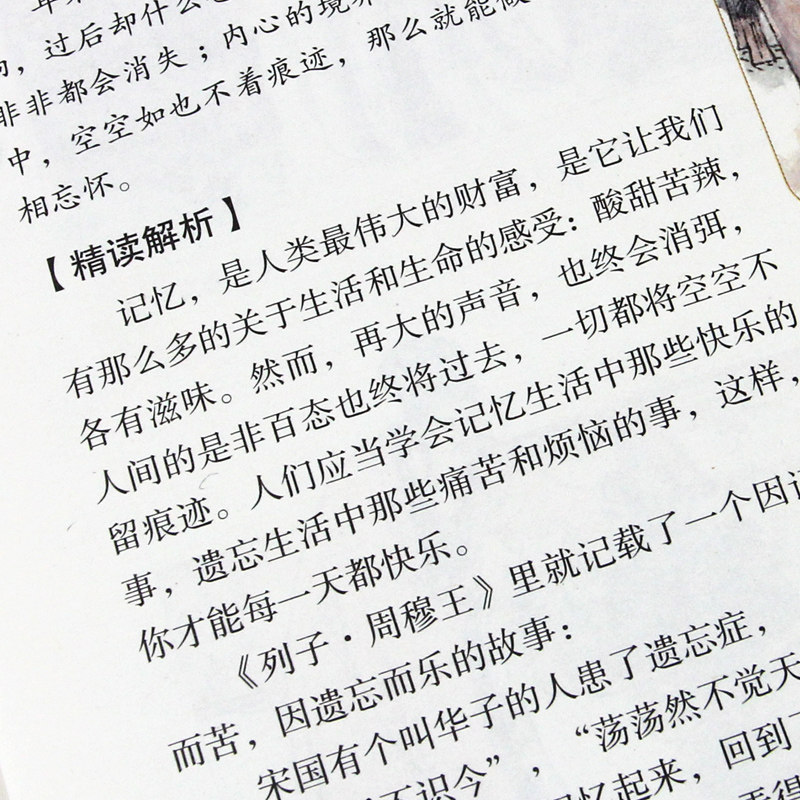 过后却什么
非非都会消失；内心的境
中，空空如也不着痕迹，那么就能
相忘怀。
【精读解析】
记忆，是人类最伟大的财富，是它让我们
有那么多的关于生活和生命的感受：酸甜苦辣，
各有滋味。然而，再大的声音，也终会消弭，
人间的是非百态也终将过去，一切都将空空不
留痕迹。人们应当学会记忆生活中那些快乐的
事，遗忘生活中那些痛苦和烦恼的事，这样，
你才能每一天都快乐。
《列子·周穆王》里就记载了一个因
而苦，因遗忘而乐的故事：
宋国有个叫华子的人患了遗忘症，
不识今”，“荡荡然不觉天
忆起来，回到